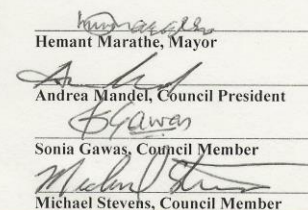 Hemant Marathe, Mayor
Andrea Mandel, Council President
SGawas
Sonia Gawas, Council Member
Michael Stevens, Council Member